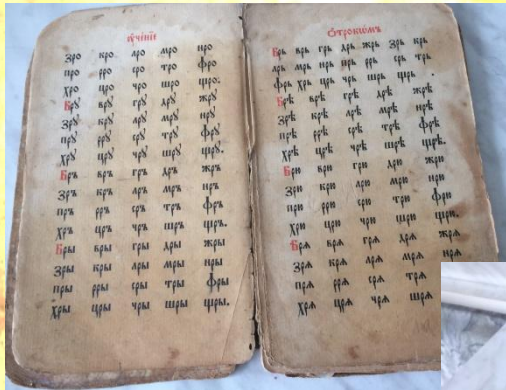 ᲂу҆че́нїи
зро кро лро мро нро
про рро сро тро фро
хро цро чро шро щро:
Бру вру гру дру жру
Зру кру лру мру нру
пру рру сру тру фру
хру цру чру шру щру.
Бръ връ гръ дръ жръ
Зръ кръ лръ мръ нръ
пръ рръ сръ тръ фръ
хръ цръ чръ шръ щръ.
Бры вры гры дры жры
Зры кры лры мры нры
пры рры сры тры фры
хры цры чры шры щры.
ѻ҆трокѡ́мъ
Брь врь грь дрь жрь Зрь крь
лрь мрь нрь прь ррь срь трь
фрь хрь црь чрь шрь щрь.
Брѣ врѣ грѣ дрѣ жрѣ
Зрѣ крѣ лрѣ мрѣ нрѣ
прѣ ррѣ срѣ трѣ фрѣ
хрѣ црѣ чрѣ шрѣ щрѣ.
Брю врю грю дрю жрю
Зрю крю лрю мрю нрю
прю ррю срю трю фрю
хрю црю чрю шрю щрю.
Брѧ врѧ грѧ дрѧ жрѧ
Зрѧ крѧ лрѧ мрѧ нрѧ
прѧ ррѧ срѧ трѧ
хрѧ црѧ чрѧ шрѧ